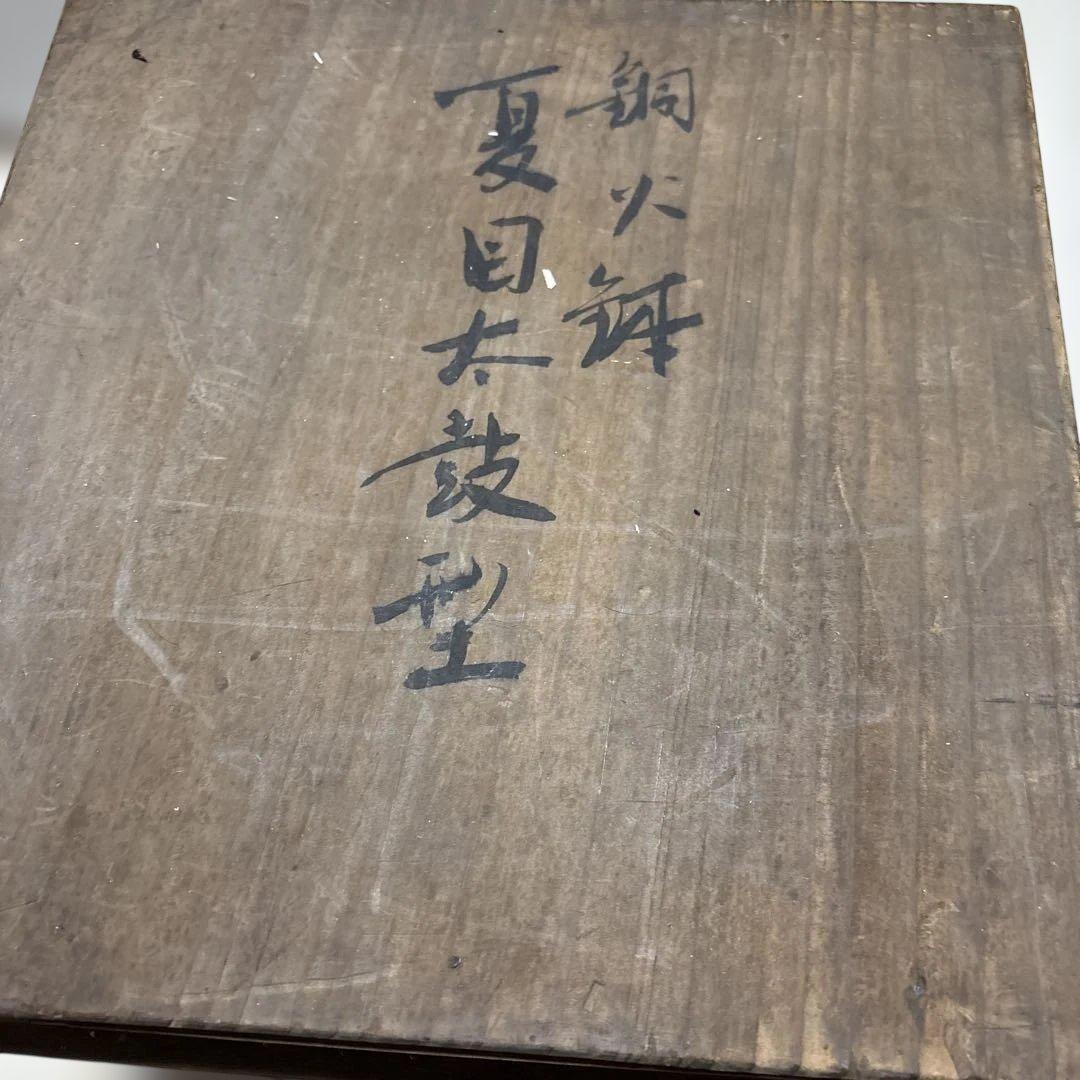 銅火鉢
夏目太鼓型